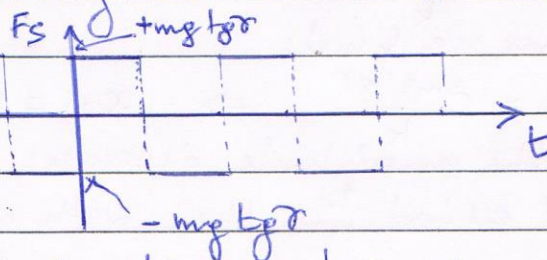 Fs +mg tgγ
t
-mg tgγ